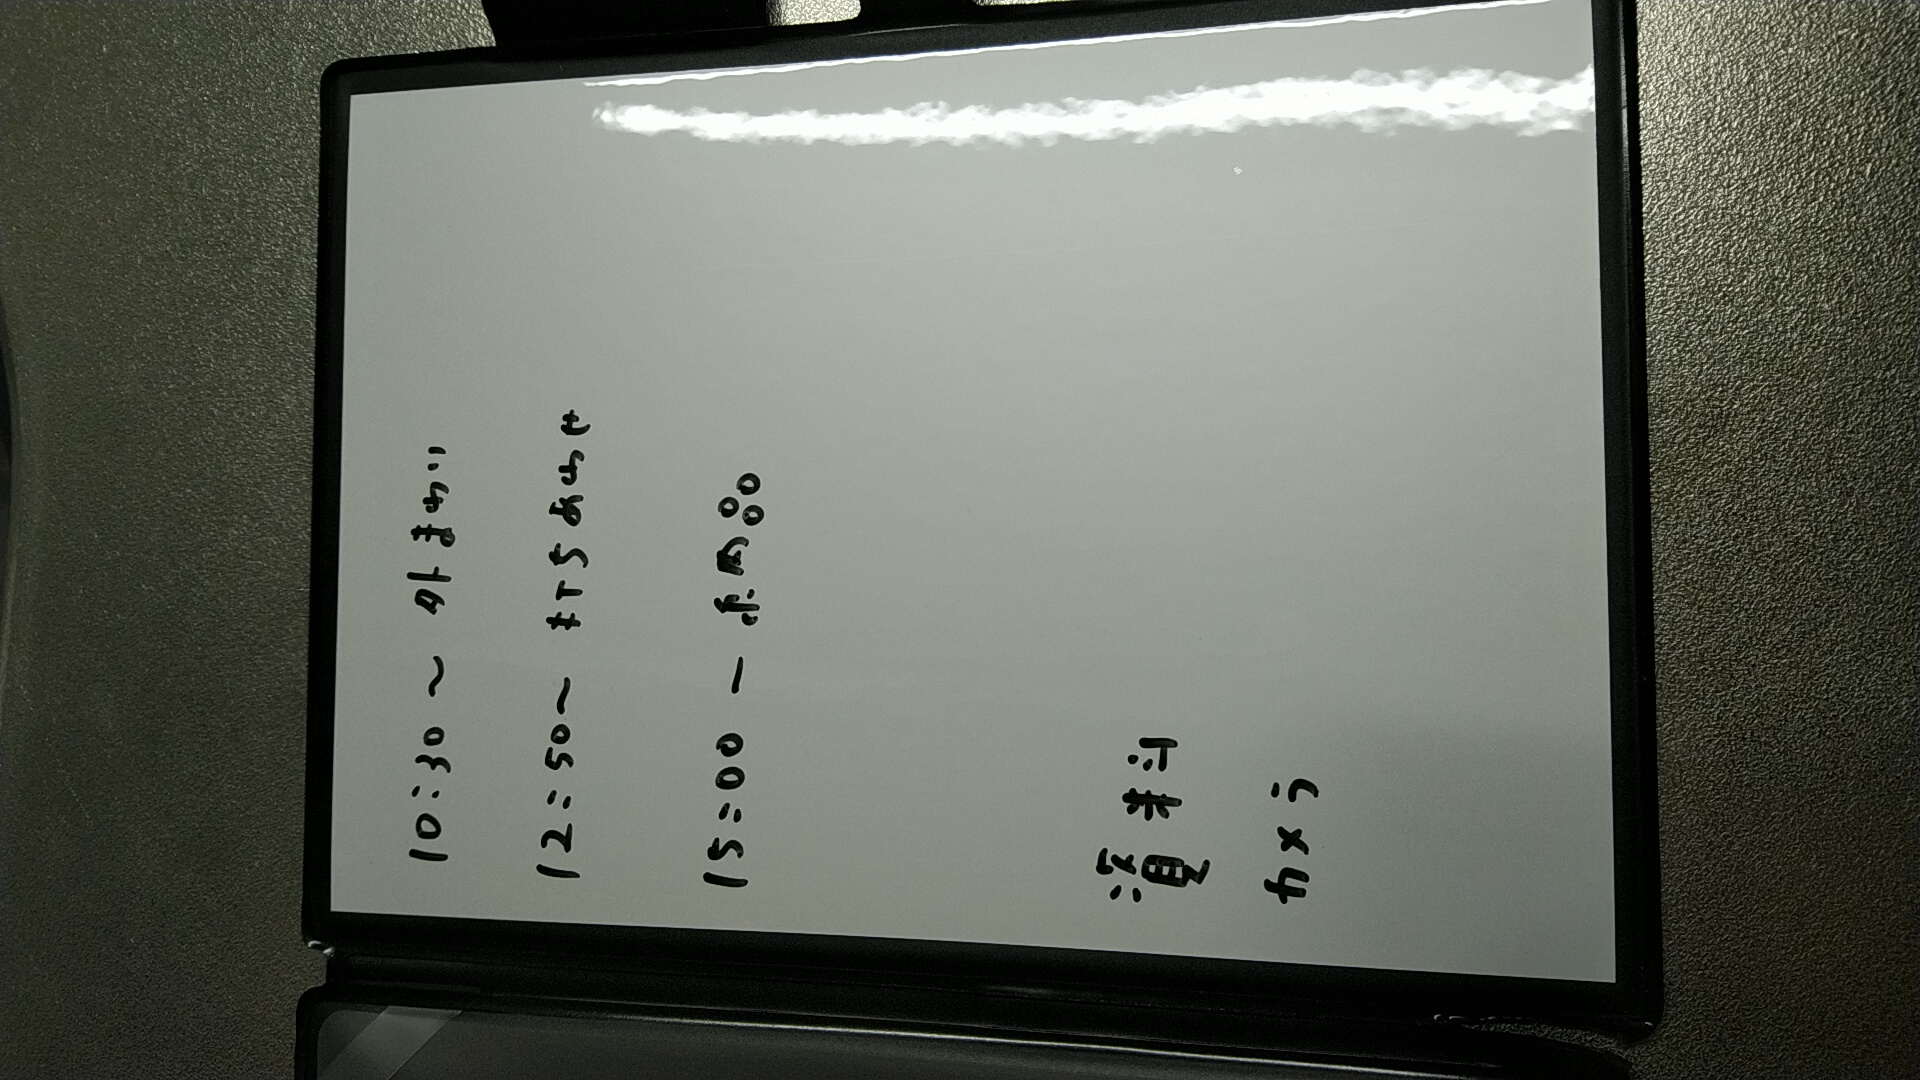 10:30〜 外まわり
12:50〜 打ちあわせ
15:00 ー 納品
資料
カメラ